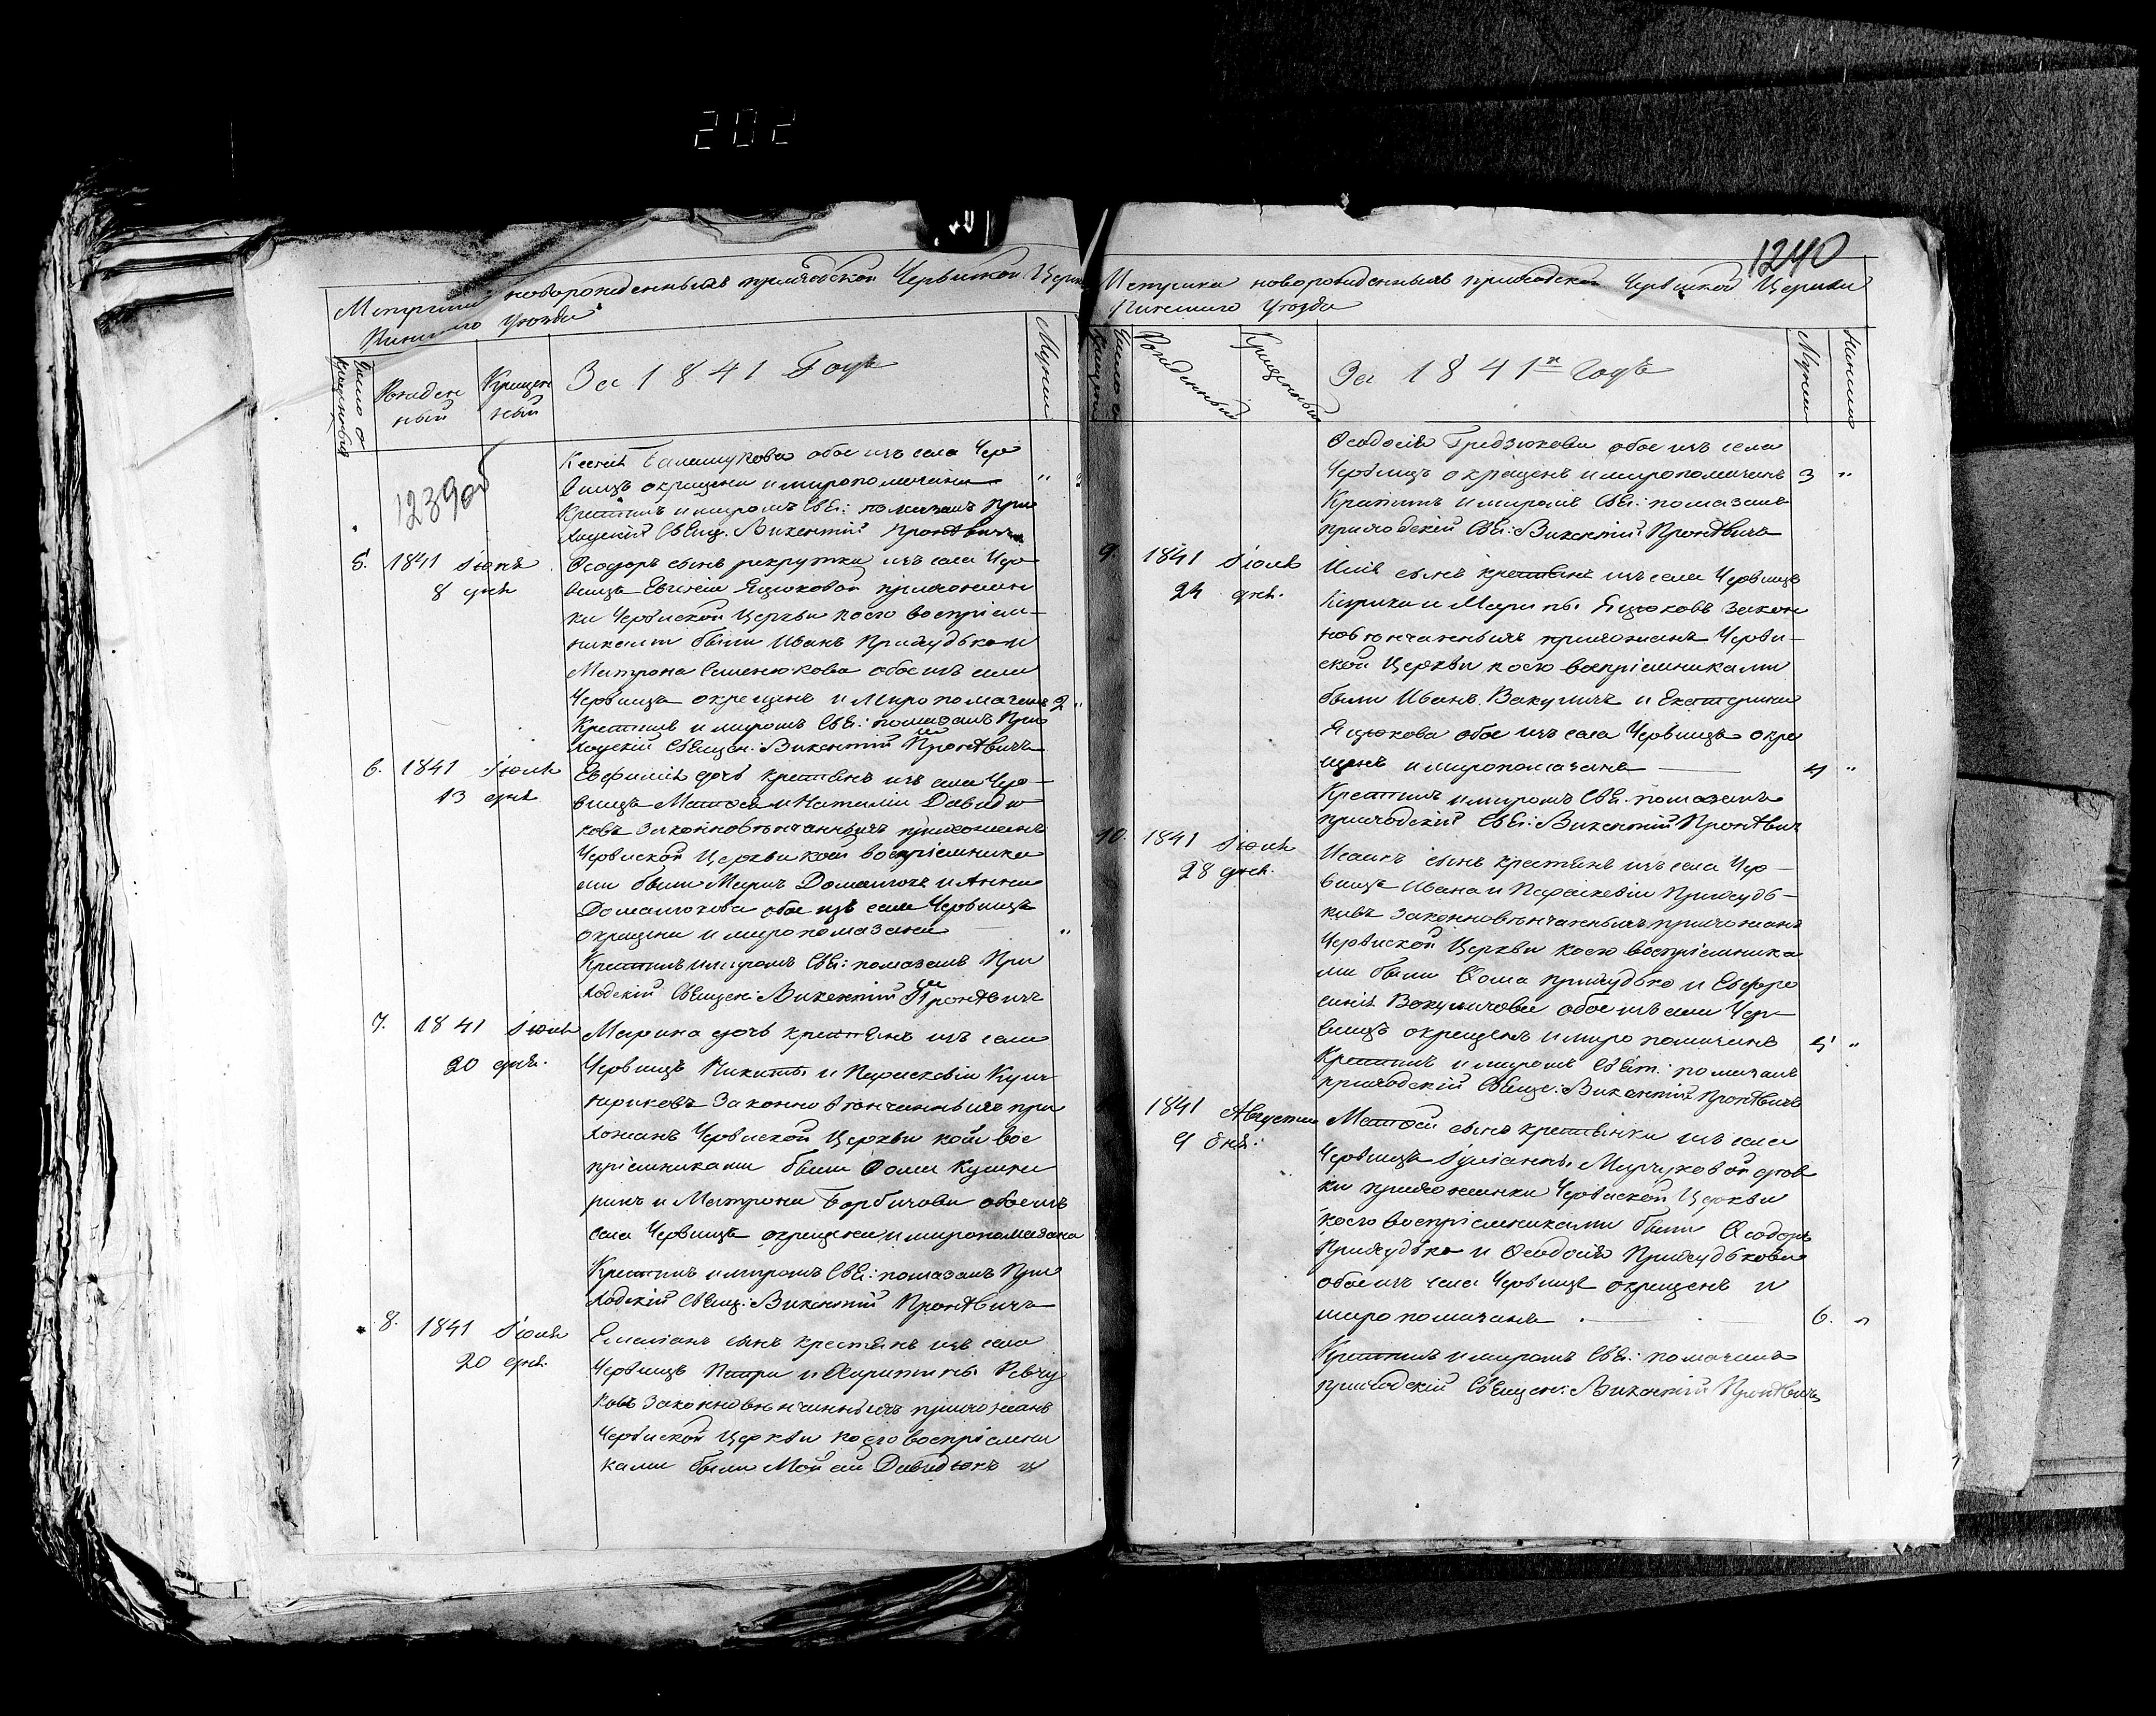 202
Метрика новорожденнымъ приходской Червиской Церкви
Пинского Уѣзда
Число окрещеныхъ
Рожден
ный
Крещен
ный
За 1841 Годъ
Мужии
1239об
Балашукова обое изъ села Чер
вищъ окрещена и миропомазана
Крестилъ и миромъ Свя: помазалъ При
ходский Свящ. Викентий Пронѣвичъ
5. 1841 Июнѣ
8 днѣ
Ѳеодоръ сынъ рекрутки изъ села Чер
вищъ Евгении Яцюковой прихожан
ки Червиской Церкви коего восприем
никами были Иванъ Прийдудько и
Матрона Семенюкова обое изъ села
Червищъ окрещенъ и миропомазанъ 2 "
Крестилъ и миромъ Свя: помазалъ При
ходский Священ: Викентий Пронѣвичъ
6. 1841 Июлѣ
13 днѣ
Евфимия дочь крестьянъ изъ села Чер
вищъ Матѳея и Наталии Давидю
ковъ законновѣнчанныхъ прихожанъ
Червиской Церкви коей восприемника
ми были Марко Доманюкъ и Анна
Доманюкова обое изъ села Червищъ
окрещена и миропомазана "
Крестилъ и миромъ Свя: помазалъ При
ходский Священ: Викентий Пронѣвичъ
7. 1841 Июлѣ
20 днѣ.
Марина дочь крестьянъ изъ села
Червищъ Никиты и Параскевии Куш
нриковъ Законновѣнчанныхъ при
хожанъ Червиской Церкви коей вос
приемниками были Ѳома Кушни
рикъ и Матрона Борбичова обое изъ
села Червищъ окрещена и миропомазана
Крестилъ и миромъ Свя: помазалъ При
ходский Свящ: Викентий Пронѣвичъ
8. 1841 Июлѣ
20 днѣ.
Емелианъ сынъ крестьянъ изъ села
Червищъ Петра и Харитины Ревчу
ковъ Законновѣнчанныхъ прихожанъ
Червиской Церкви коего восприемни
ками были Мойсей Давидюкъ и
1240
Метрика новорожденнымъ приходской Червиской Церкви
Пинского Уѣзда
Рожденный
Крещенный
За 1841 Годъ
Мужии
Ѳеодосия Гридзюкова обое изъ села
Червищъ окрещенъ и миропомазанъ 3 "
Крестилъ и миромъ Свя: помазалъ
приходский Свя: Викентий Пронѣвичъ
9. 1841 Июлѣ
24 днѣ.
Илия сынъ крестьянъ изъ села Червищъ
Кирика и Марины Яцюковъ закон
новѣнчанныхъ прихожанъ Черви
ской Церкви коего восприемниками
были Иванъ Вакуличъ и Екатерина
Яцюкова обое изъ села Червищъ окре
щенъ и миропомазанъ 4 "
Крестилъ и миромъ Свя: помазалъ
приходский Свя: Викентий Пронѣвичъ
10. 1841 Июлѣ
28 днѣ.
Исаакъ сынъ крестьянъ изъ села Чер
вищъ Ивана и Параскевии Прийдудь
ковъ Законновѣнчанныхъ прихожанъ
Червиской Церкви коего восприемника
ми были Ѳома Прийдудько и Евфро
синия Вакуличова обое изъ села Чер
вищъ окрещенъ и миропомазанъ 5 "
Крестилъ и миромъ Свят: помазалъ
приходский Свяще: Викентий Пронѣвичъ
1841 Августа
9 днѣ:
Матѳей сынъ крестьянки изъ села
Червищъ Иулианны Марчуковой дѣв
ки прихожанки Червиской Церкви
коего восприемниками были Ѳеодоръ
Прийдудько и Ѳеодосия Прийдудькова
обое изъ села Червищъ окрещенъ и
миропомазанъ 6. "
Крестилъ и миромъ Свя: помазалъ
приходский Священ: Викентий Пронѣвичъ